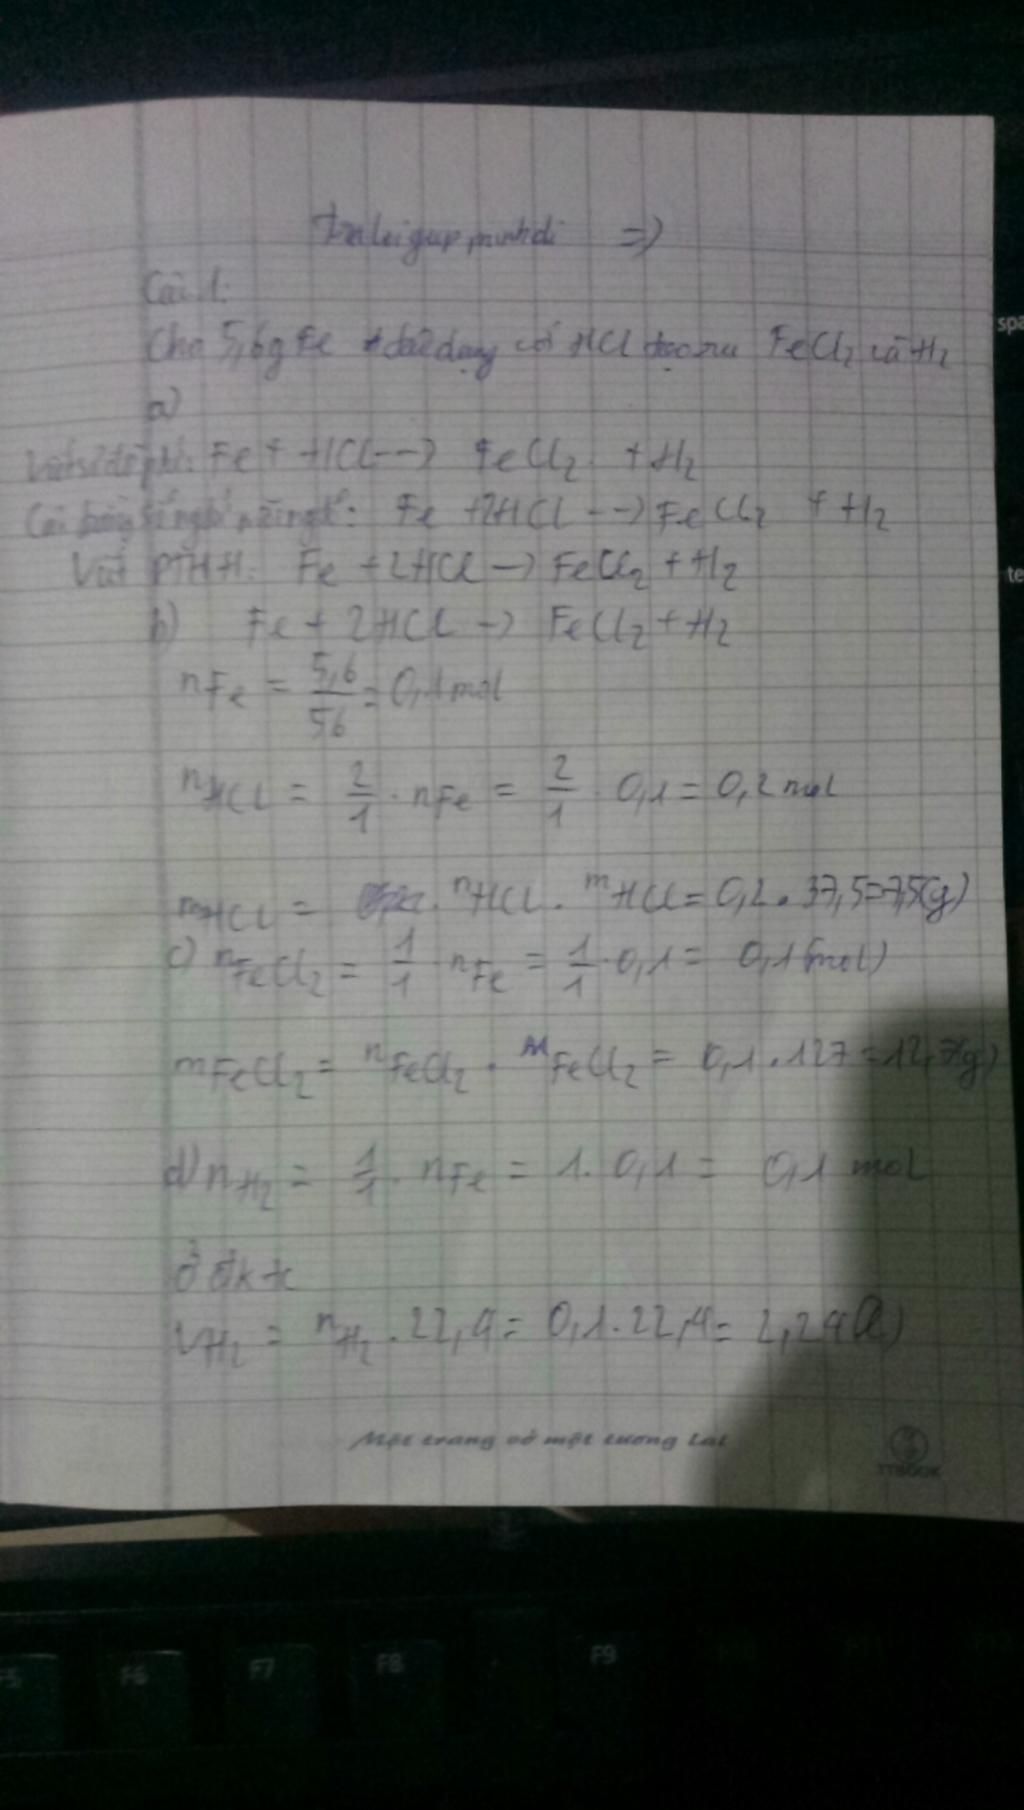 Trả lời giúp mình đi =)
Câu 1:
Cho 5,6g Fe tác dụng với HCl tạo ra FeCl2 và H2
a)
Viết sơ đồ pư: Fe + HCl --> FeCl2 + H2
Cân bằng số ngtử mỗi ngtố: Fe + 2HCl --> FeCl2 + H2
Viết PTHH: Fe + 2HCl → FeCl2 + H2
b) Fe + 2HCl → FeCl2 + H2
nFe = 5,6/56 = 0,1 mol
nHCl = 2/1 . nFe = 2/1 . 0,1 = 0,2 mol
mHCl = nHCl . mHCl = 0,2 . 37,5 = 7,5(g)
c) nFeCl2 = 1/1 . nFe = 1/1 . 0,1 = 0,1 (mol)
mFeCl2 = nFeCl2 . MFeCl2 = 0,1 . 127 = 12,7(g)
d) nH2 = 1/1 . nFe = 1 . 0,1 = 0,1 mol
ở đktc
VH2 = nH2 . 22,4 = 0,1 . 22,4 = 2,24(l)
Một trang vở một tương lai
TTBOOK
F5 F6 F7 F8 F9
spa
te